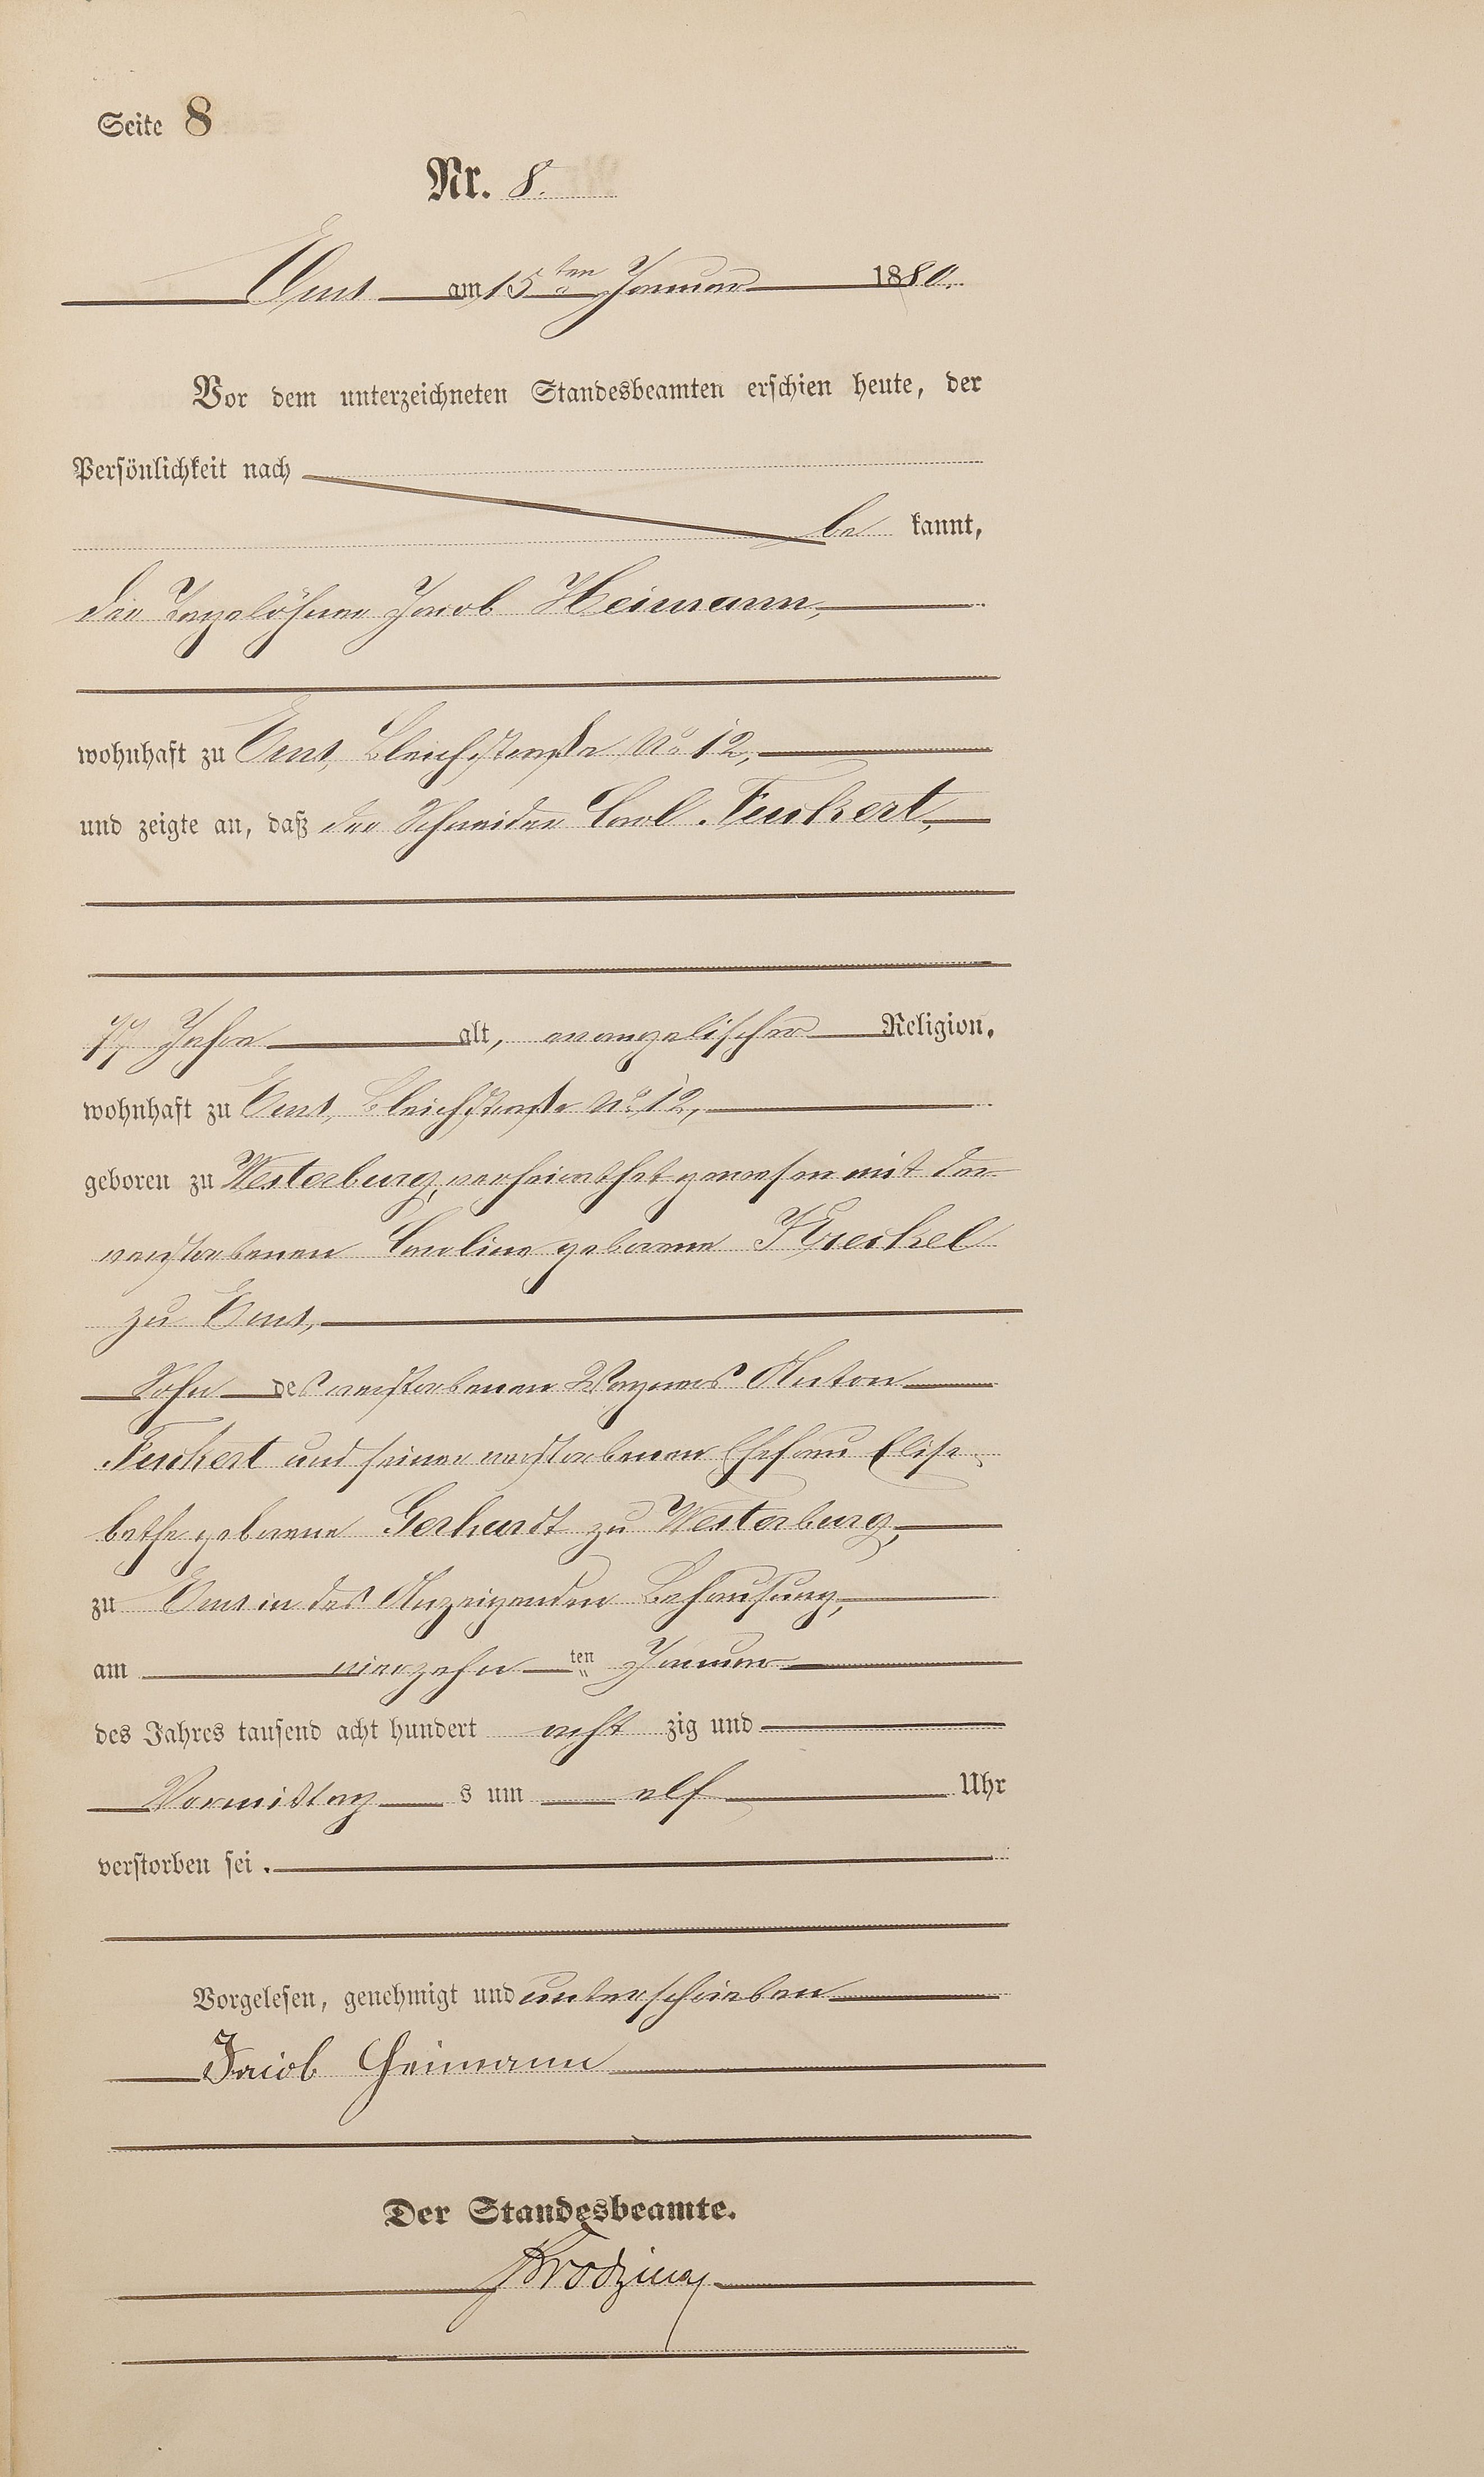 Seite 8
Nr. 8.
Ems am 15ten Januar 1880.
Vor dem unterzeichneten Standesbeamten erschien heute, der
Persönlichkeit nach
be kannt,
der Tagelöhner Jacob Heimann,
wohnhaft zu Ems, Bleichstraße No 12,
und zeigte an, daß der Schneider Carl Feukert,
77 Jahre alt, evangelischer Religion.
wohnhaft zu Ems, Bleichstraße No 12,
geboren zu Westerburg, verheirathet gewesen mit der
verstorbenen Caroline geborene
zu Ems,
Sohn des verstorbenen Wagners Anton
Feukert und seiner verstorbenen Ehefrau Elisa-
bethe geborene Gerhardt zu Westerburg,
zu Ems in des Anzeigenden Behausung,
am vierzehn ten Januar
des Jahres tausend acht hundert acht zig und
Vormittag s um elf Uhr
verstorben sei.
Vorgelesen, genehmigt und unterschrieben
Jacob Heimann
Der Standesbeamte.